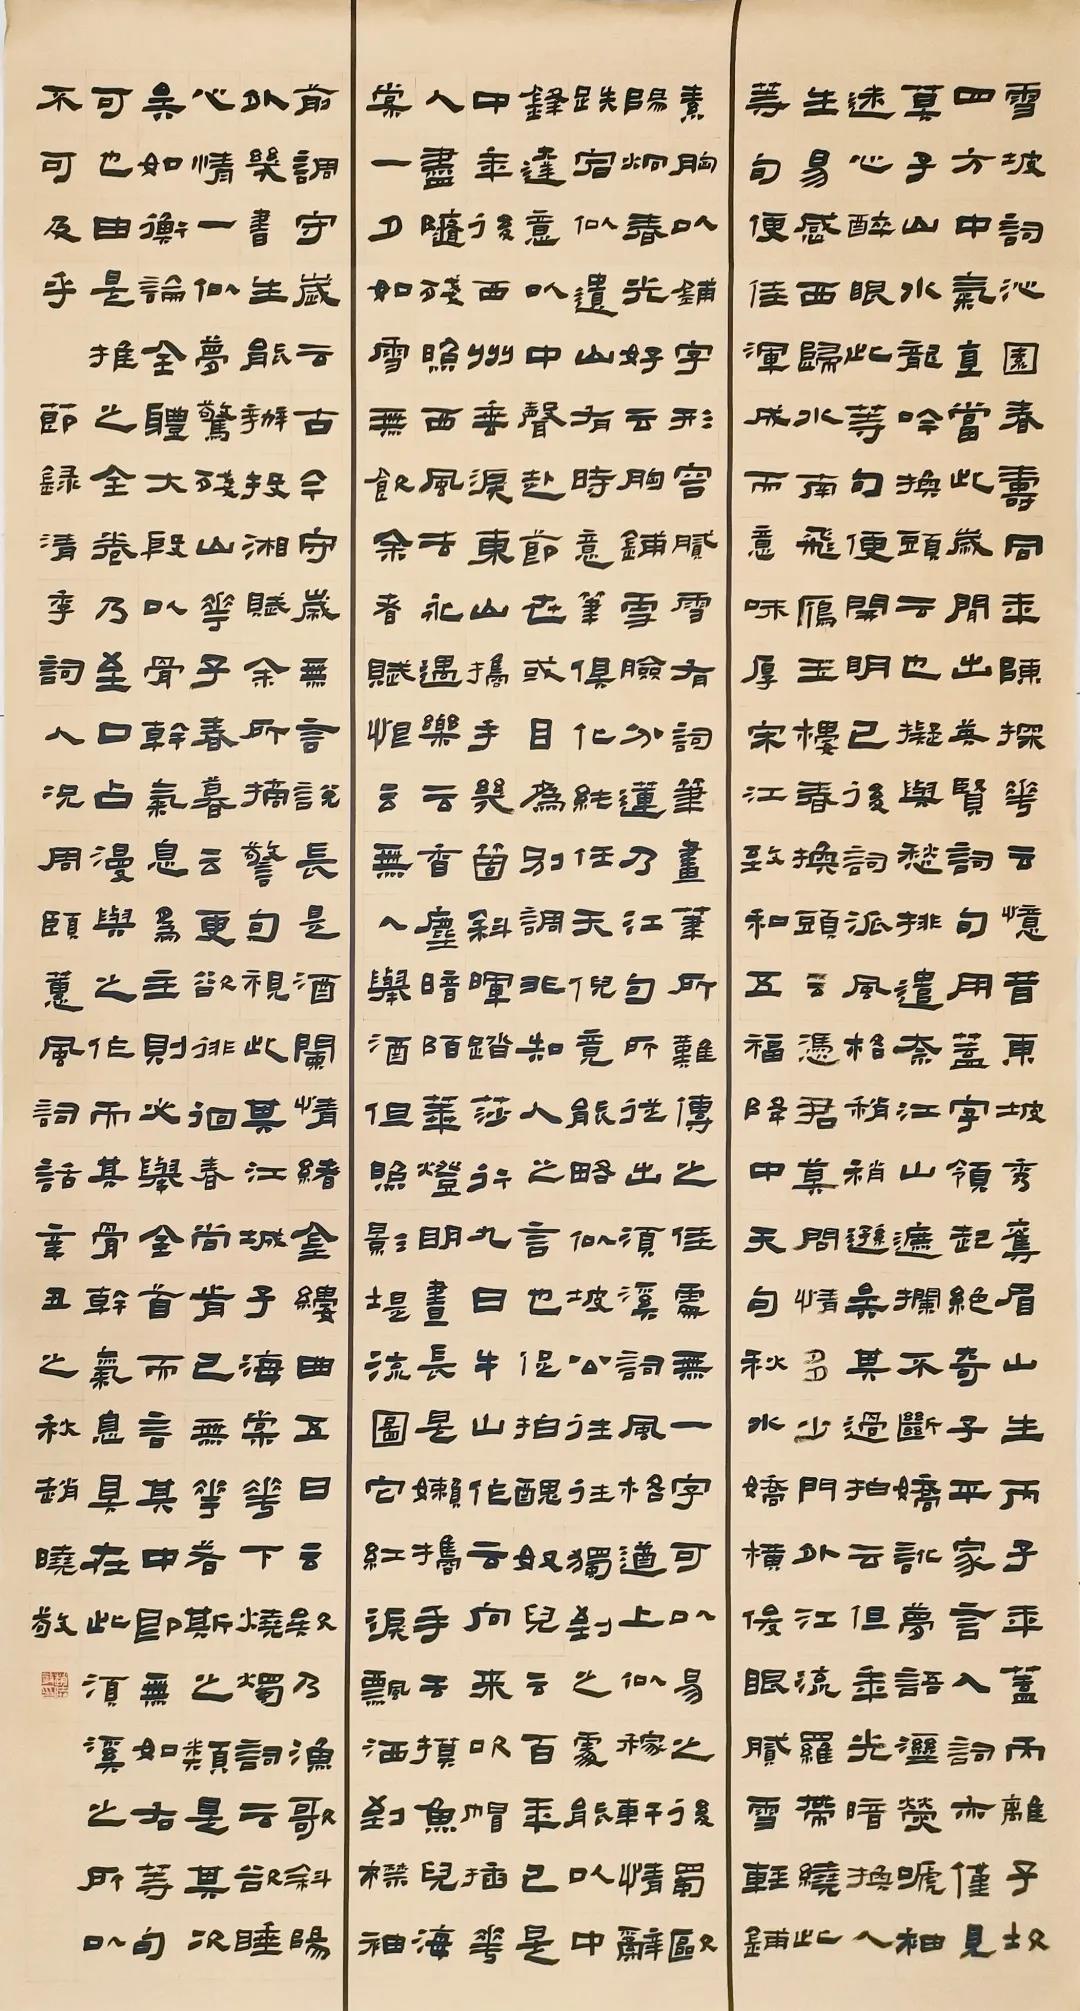 雪坡詞沁園春壽同年陳探花云憶昔東坡秀奪眉山生丙子年蓋丙離子坎
四方中氣直當此歲間出英賢詞句用蓋字領起絕奇子平家言入詞亦僅見
莫子山水龍吟換頭云也擬與愁排遣奈江山遮攔不斷嬌訛夢語濕熒嗁袖
迷心醉眼此等句便開明已後詞派風格稍稍遜矣其過拍云但年光暗換人
生易感西歸水南飛雁玉樓春換頭云憑君莫問情多少門外江流羅帶繞此
等句便佳渾成而意味厚宋江致和五福降中天句秋水嬌橫俊眼膩雪輕鋪
素胸以鋪字形容膩雪有詞筆畫筆所難傳之佳處無一字可以易之後蜀歐
陽炯春光好云胸鋪雪臉分蓮乃江句所從出須溪詞風格遒上似稼軒情辭
跌宕似遺山有時意筆俱化純任天倪竟能略似坡公往往獨到之處能以中
鋒達意以中聲赴節世或目為別調非知人之言也促拍醜奴兒云百年已是
中年後西州垂淚東山攜手幾箇斜暉踏莎行九日牛山作云向來吹帽插花
人盡隨殘照西風去永遇樂云香塵暗陌華燈明晝長是嬾攜手去摸魚兒海
棠一刀如雪無飲余者賦恨云無人舉酒但照影堤流圖它紅淚飄洒到襟袖
前調守歲云古今守歲無言說長是酒闌情緒金縷曲五日云欸乃漁歌斜陽
外幾書生能辦投湘賦余所摘警句視此其江城子海棠花下燒燭詞云欲睡
心情一似夢驚殘山花子春暮云更欲徘徊春尚肯已無花若斯之類是其次
矣如衡論全體大段以骨幹氣息為主則必舉全首而言其中即無如右等句
可也由是推之全卷乃至口占漫與之作而其骨幹氣息具在此須溪之所以
不可及乎 節錄清季詞人況周頤蕙風詞話辛丑之秋趙曉敬